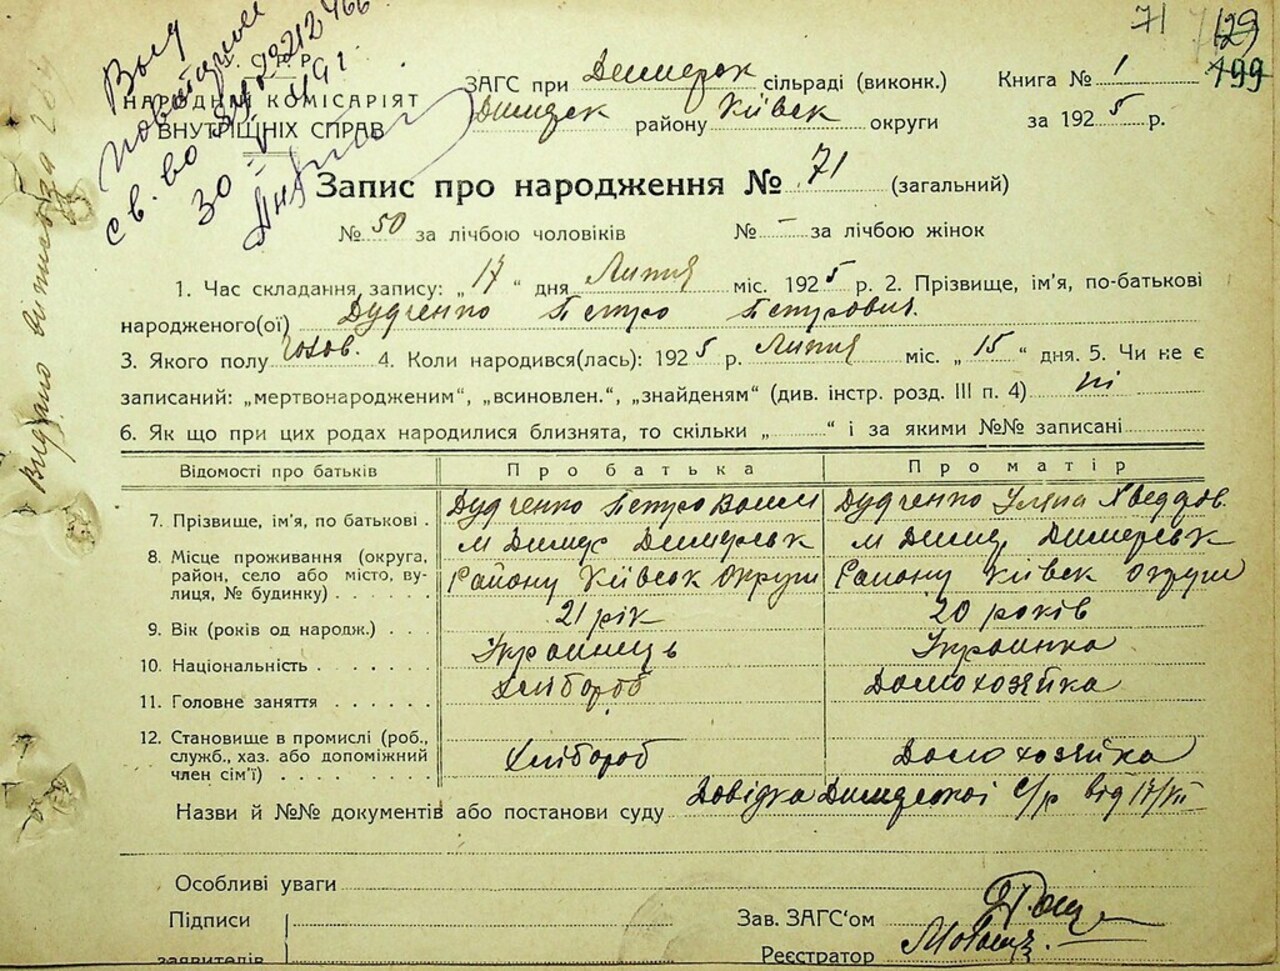 71 129
199
У.С.Р.Р.
НАРОДНИЙ КОМІСАРІЯТ
ВНУТРІШНІХ СПРАВ
30
ЗАГС при Димерск сільраді (виконк.) Книга № 1
Димерск району Київск округи за 1925 р.
Запис про народження № 71 (загальний)
№ 50 за лічбою чоловіків № – за лічбою жінок
1. Час складання запису: „17“ дня Липня міс. 1925 р. 2. Прізвище, ім'я, по-батькові
народженого(ої) Дудченко Петро Петрович.
3. Якого полу чолов. 4. Коли народився(лась): 1925 р. Липня міс. „15“ дня. 5. Чи не є
записаний: „мертвонародженим“, „всиновлен.“, „знайденям“ (див. інстр. розд. III п. 4) ні
6. Як що при цих родах народилися близнята, то скільки „ “ і за якими №№ записані
Відомості про батьків Про батька Про матір
7. Прізвище, ім'я, по батькові . Дудченко Петро Васил Дудченко Уляна Хведдов.
8. Місце проживання (округа, м Димер Димерськ м Димер Димерськ
район, село або місто, ву- Району Київськ Округи Району Київск округи
лиця, № будинку)
9. Вік (років од народж.) 21 рік 20 років
10. Національність Украинець Украинка
11. Головне заняття Хлібороб Домохозяйка
12. Становище в промислі (роб.,
служб., хаз. або допоміжний Хлібороб Домохозяйка
член сім'ї)
Назви й №№ документів або постанови суду Довідка Димерської с/р від 17/VII
Особливі уваги
Підписи Зав. ЗАГС‘ом
заявителів Реєстратор